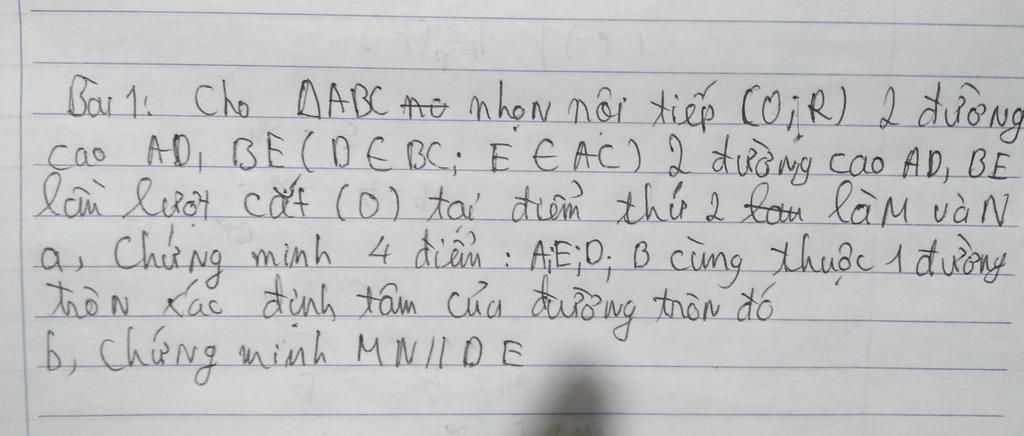 Bài 1: Cho ΔABC nhọn nội tiếp (O;R) 2 đường
cao AD, BE (D ∈ BC; E ∈ AC) 2 đường cao AD, BE
lần lượt cắt (O) tại điểm thứ 2 là M và N
a, Chứng minh 4 điểm: A;E;D; B cùng thuộc 1 đường
tròn xác định tâm của đường tròn đó
b, Chứng minh MN//DE